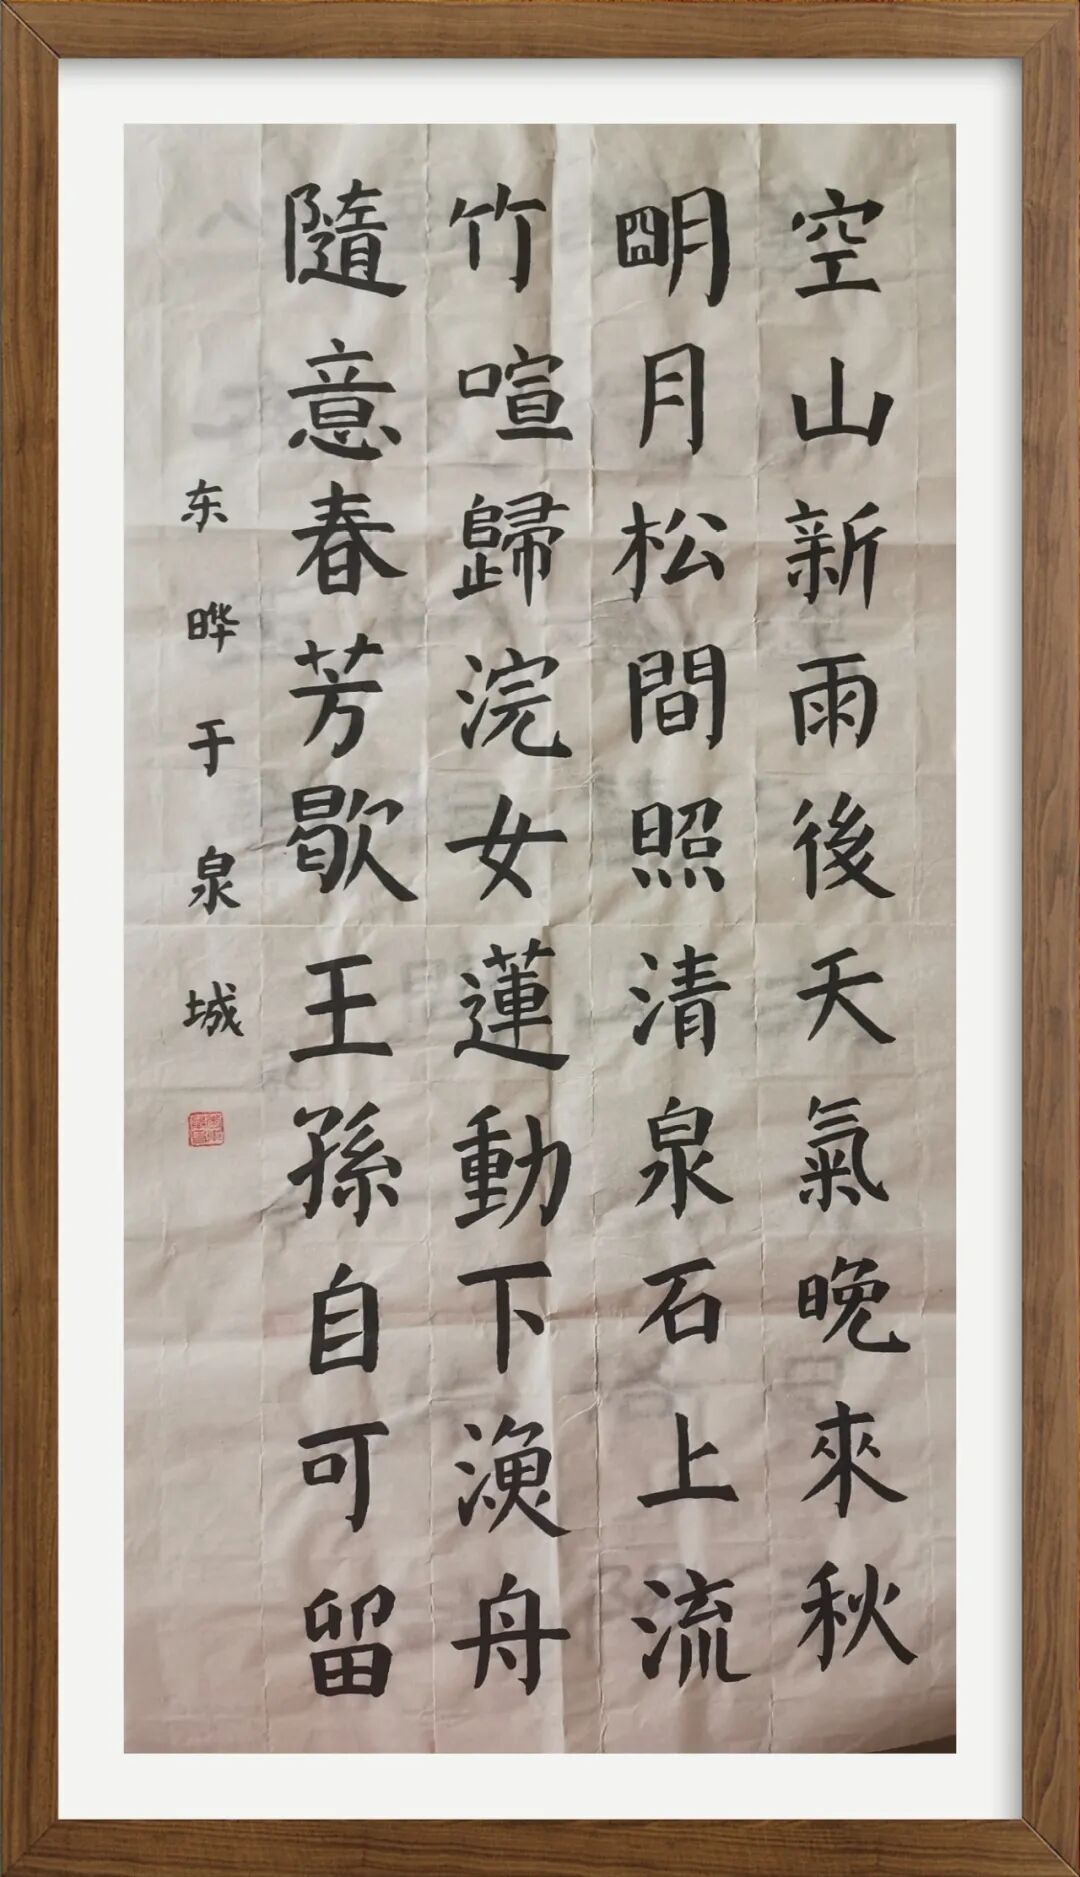 空山新雨後天氣晚來秋
明月松間照清泉石上流
竹喧歸浣女蓮動下漁舟
隨意春芳歇王孫自可留
东晔于泉城